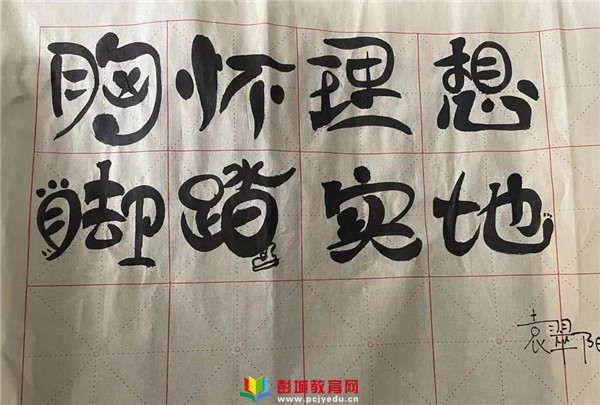 胸怀理想
脚踏实地
袁翠阳
彭城教育网
www.pcjyedu.cn